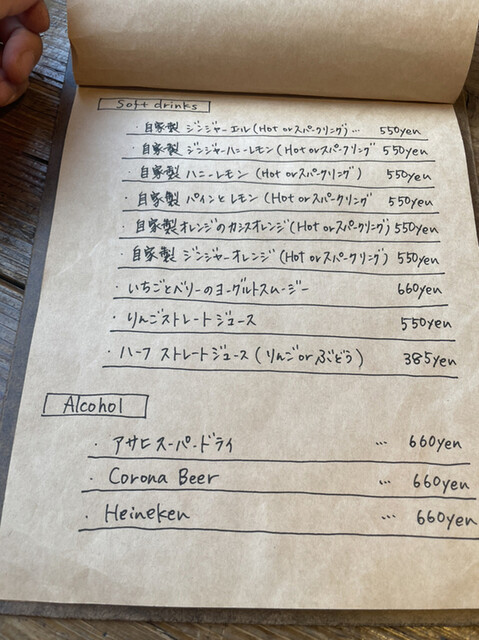 Soft drinks
・自家製 ジンジャーエル(Hot orスパークリング)… 550yen
・自家製 ジンジャーハニーレモン(Hot orスパークリング 550yen
・自家製 ハニーレモン(Hot orスパークリング) 550yen
・自家製 パインとレモン(Hot orスパークリング 550yen
・自家製オレンジのカシスオレンジ(Hot orスパークリング) 550yen
・自家製 ジンジャーオレンジ(Hot orスパークリング) 550yen
・いちごとベリーのヨーグルトスムージー 660yen
・りんごストレートジュース 550yen
・ハーフ ストレートジュース(りんご or ぶどう) 385yen
Alcohol
・アサヒスーパードライ … 660yen
・Corona Beer … 660yen
・Heineken … 660yen